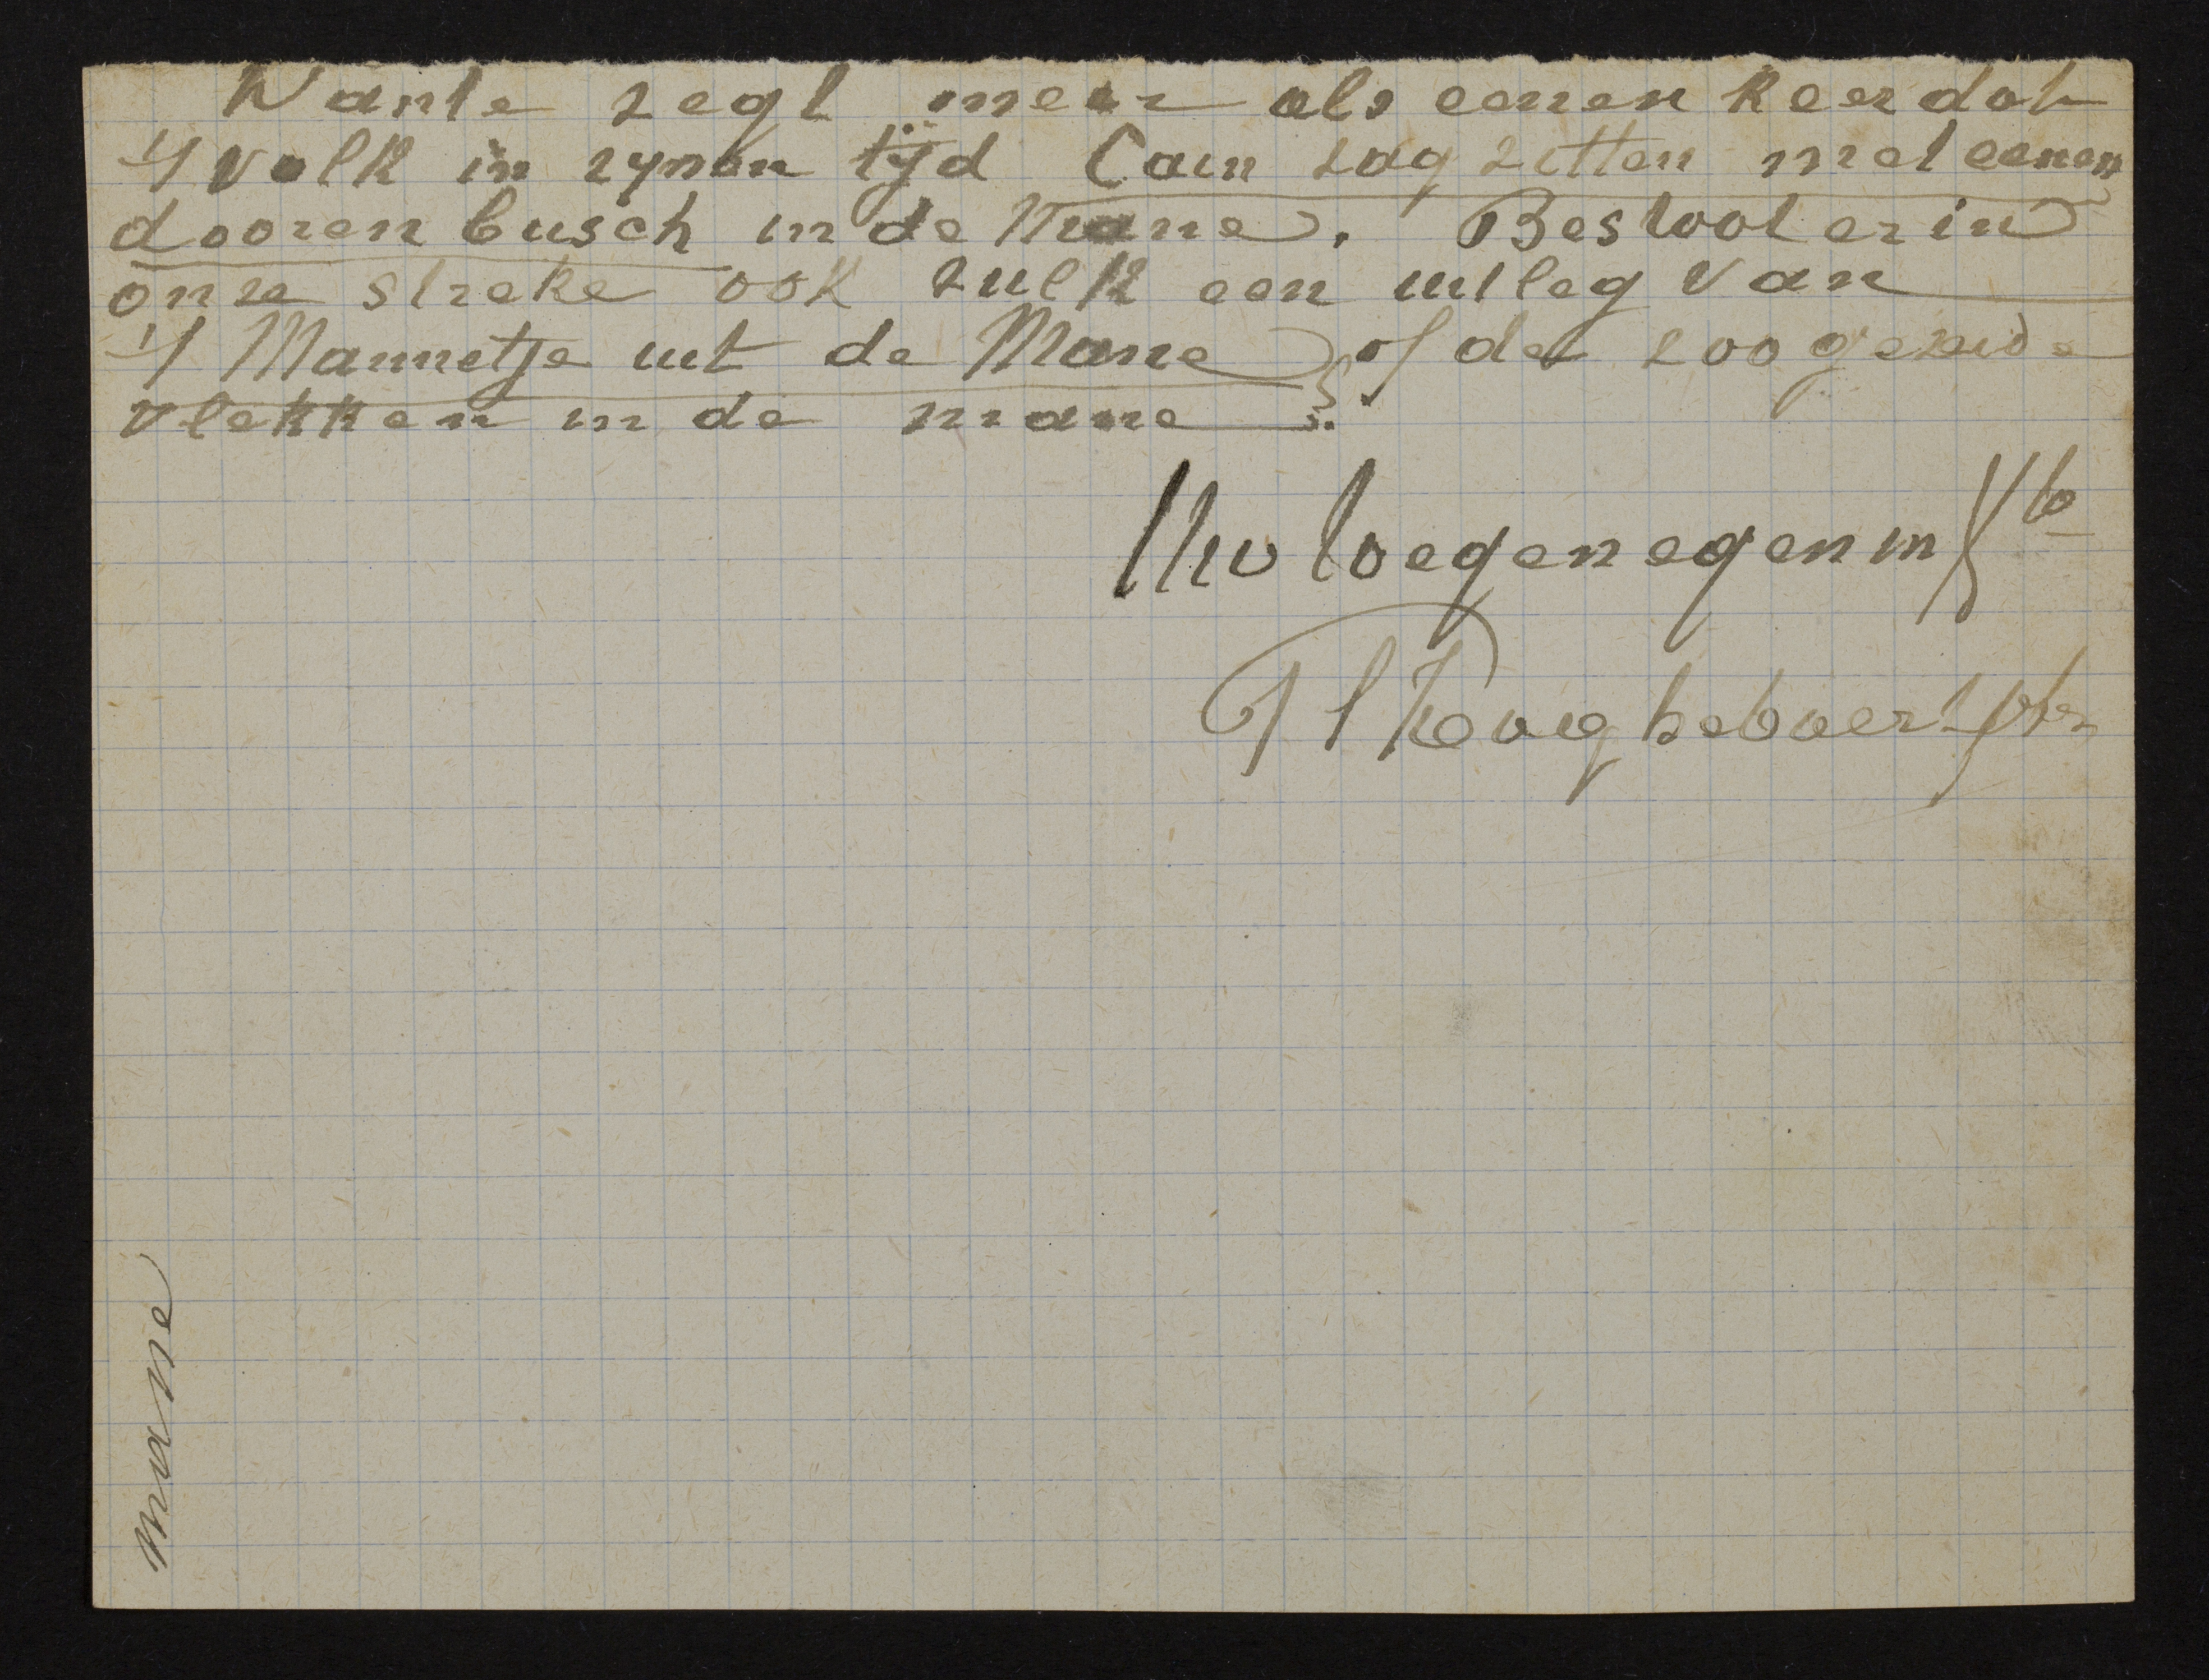 Wante zegt meer als eenen keer dat
't volk in zynen tijd Caïn zag zitten met eenen
doorenbusch in de Mane. Bestoot er in
onze streke ook zulk een uitleg van
't Mannetje uit de Mane of de zoogezeide
vlekken in de mane?
Uw toegenegen in
mane